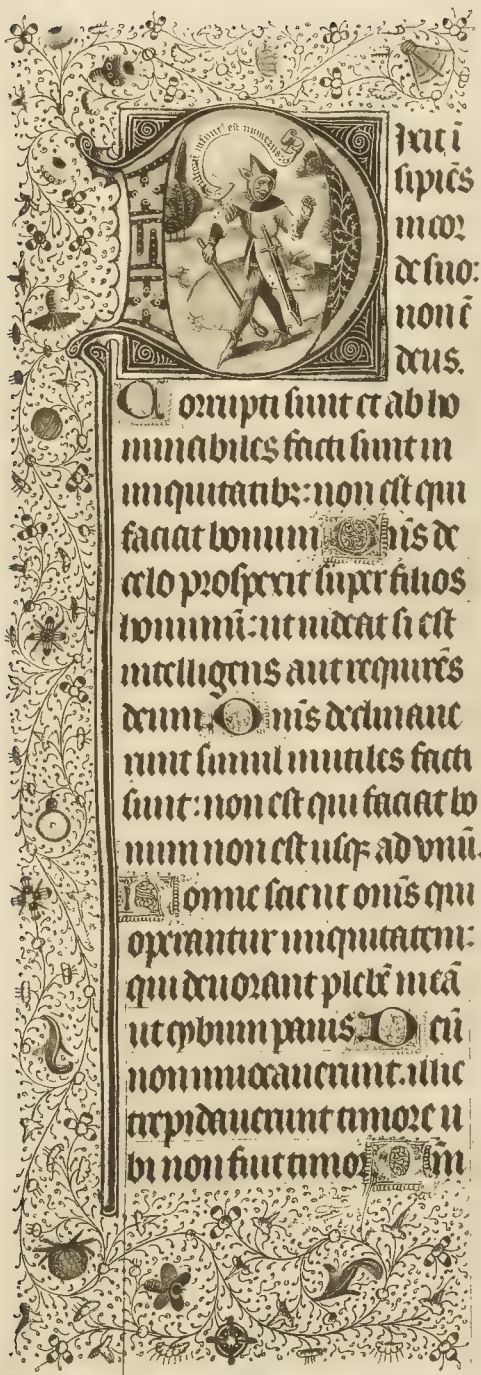 infinit' est numerus
Dixit ī
sipiēs
in cor
de suo:
non ē
deus.
Corrupti sunt et ab ho
minabiles facti sunt in
iniquitatibꝫ: non est qui
faciat bonum Dn̄s de
celo prospexit super filios
hominū: ut uideat si est
intelligens aut requirēs
deum. Om̄s declinaue
runt simul inutiles facti
sunt: non est qui faciat bo
num non est usqꝫ ad vnū.
Nonne scient om̄s qui
operantur iniquitatem:
qui deuorant plebē meā
ut cybum panis Deū
non inuocauerunt. illic
trepidauerunt timore u
bi non fuit timor Qm̄